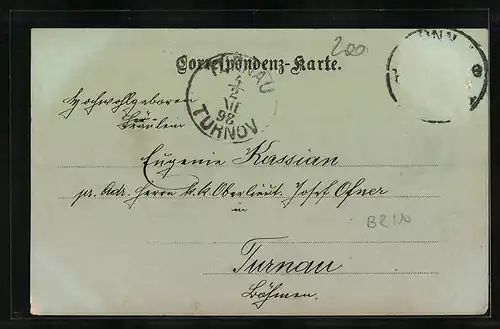 200
Correspondenz-Karte.
TURNAU
4/2
VII
98
TURNOV
Hochwohlgeboren
Fräulein
Eugenie Kassian
pr. Adr. Herrn k. k. Oberlieut. Josef Ofner
in
BRNO
Turnau
Böhmen.